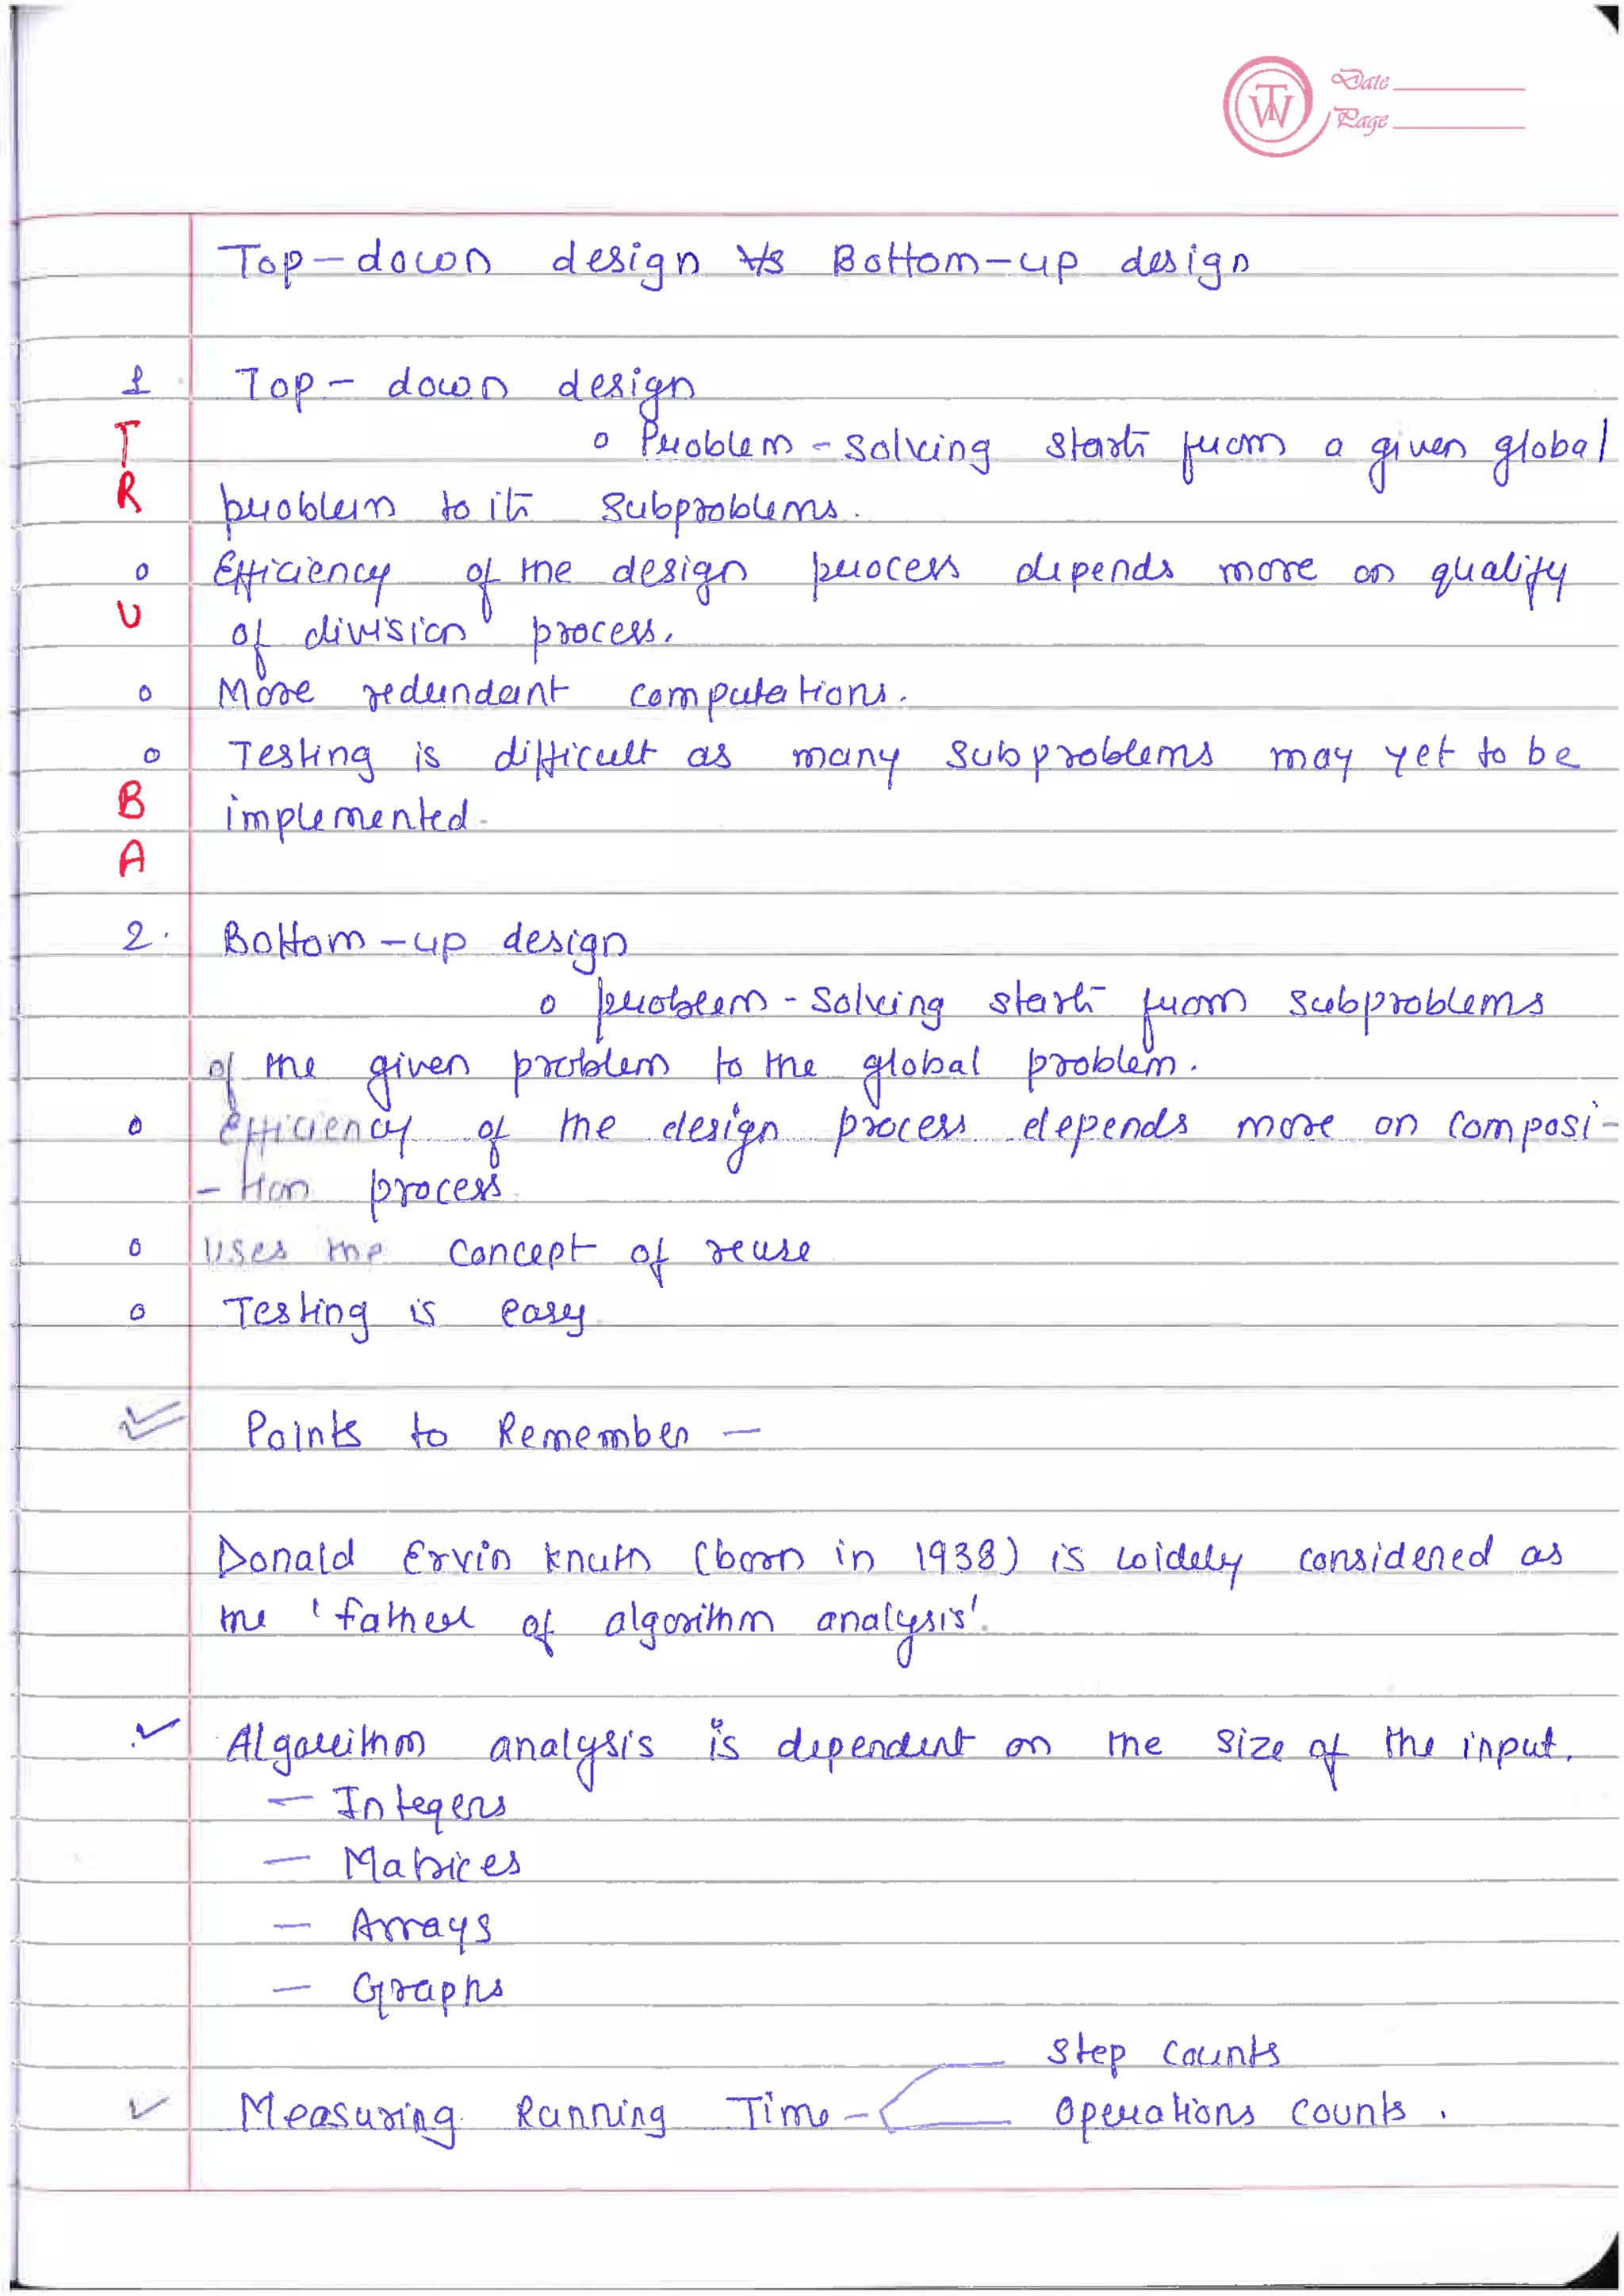 TW Date
Page
Top-down design V/s Bottom-up design
1 Top- down design
o Problem - Solving starts from a given global
T
R problem to its Subproblems.
o Efficiency of the design process depends more on quality
U of division process.
o More redundant computations.
o Testing is difficult as many Subproblems may yet to be
B implemented.
A
2. Bottom-up design
o problem - Solving starts from Subproblems
of the given problem to the global problem.
o Efficiency of the design process depends more on composi-
- tion process.
o Uses the Concept of reuse
o Testing is easy.
Points to Remember -
Donald Ervin Knuth (born in 1938) is widely considered as
the 'father of algorithm analysis'.
✓ Algorithm analysis is dependent on the size of the input.
- Integers
- Matrices
- Arrays
- Graphs
Step Counts
✓ Measuring Running Time - Operations Counts.